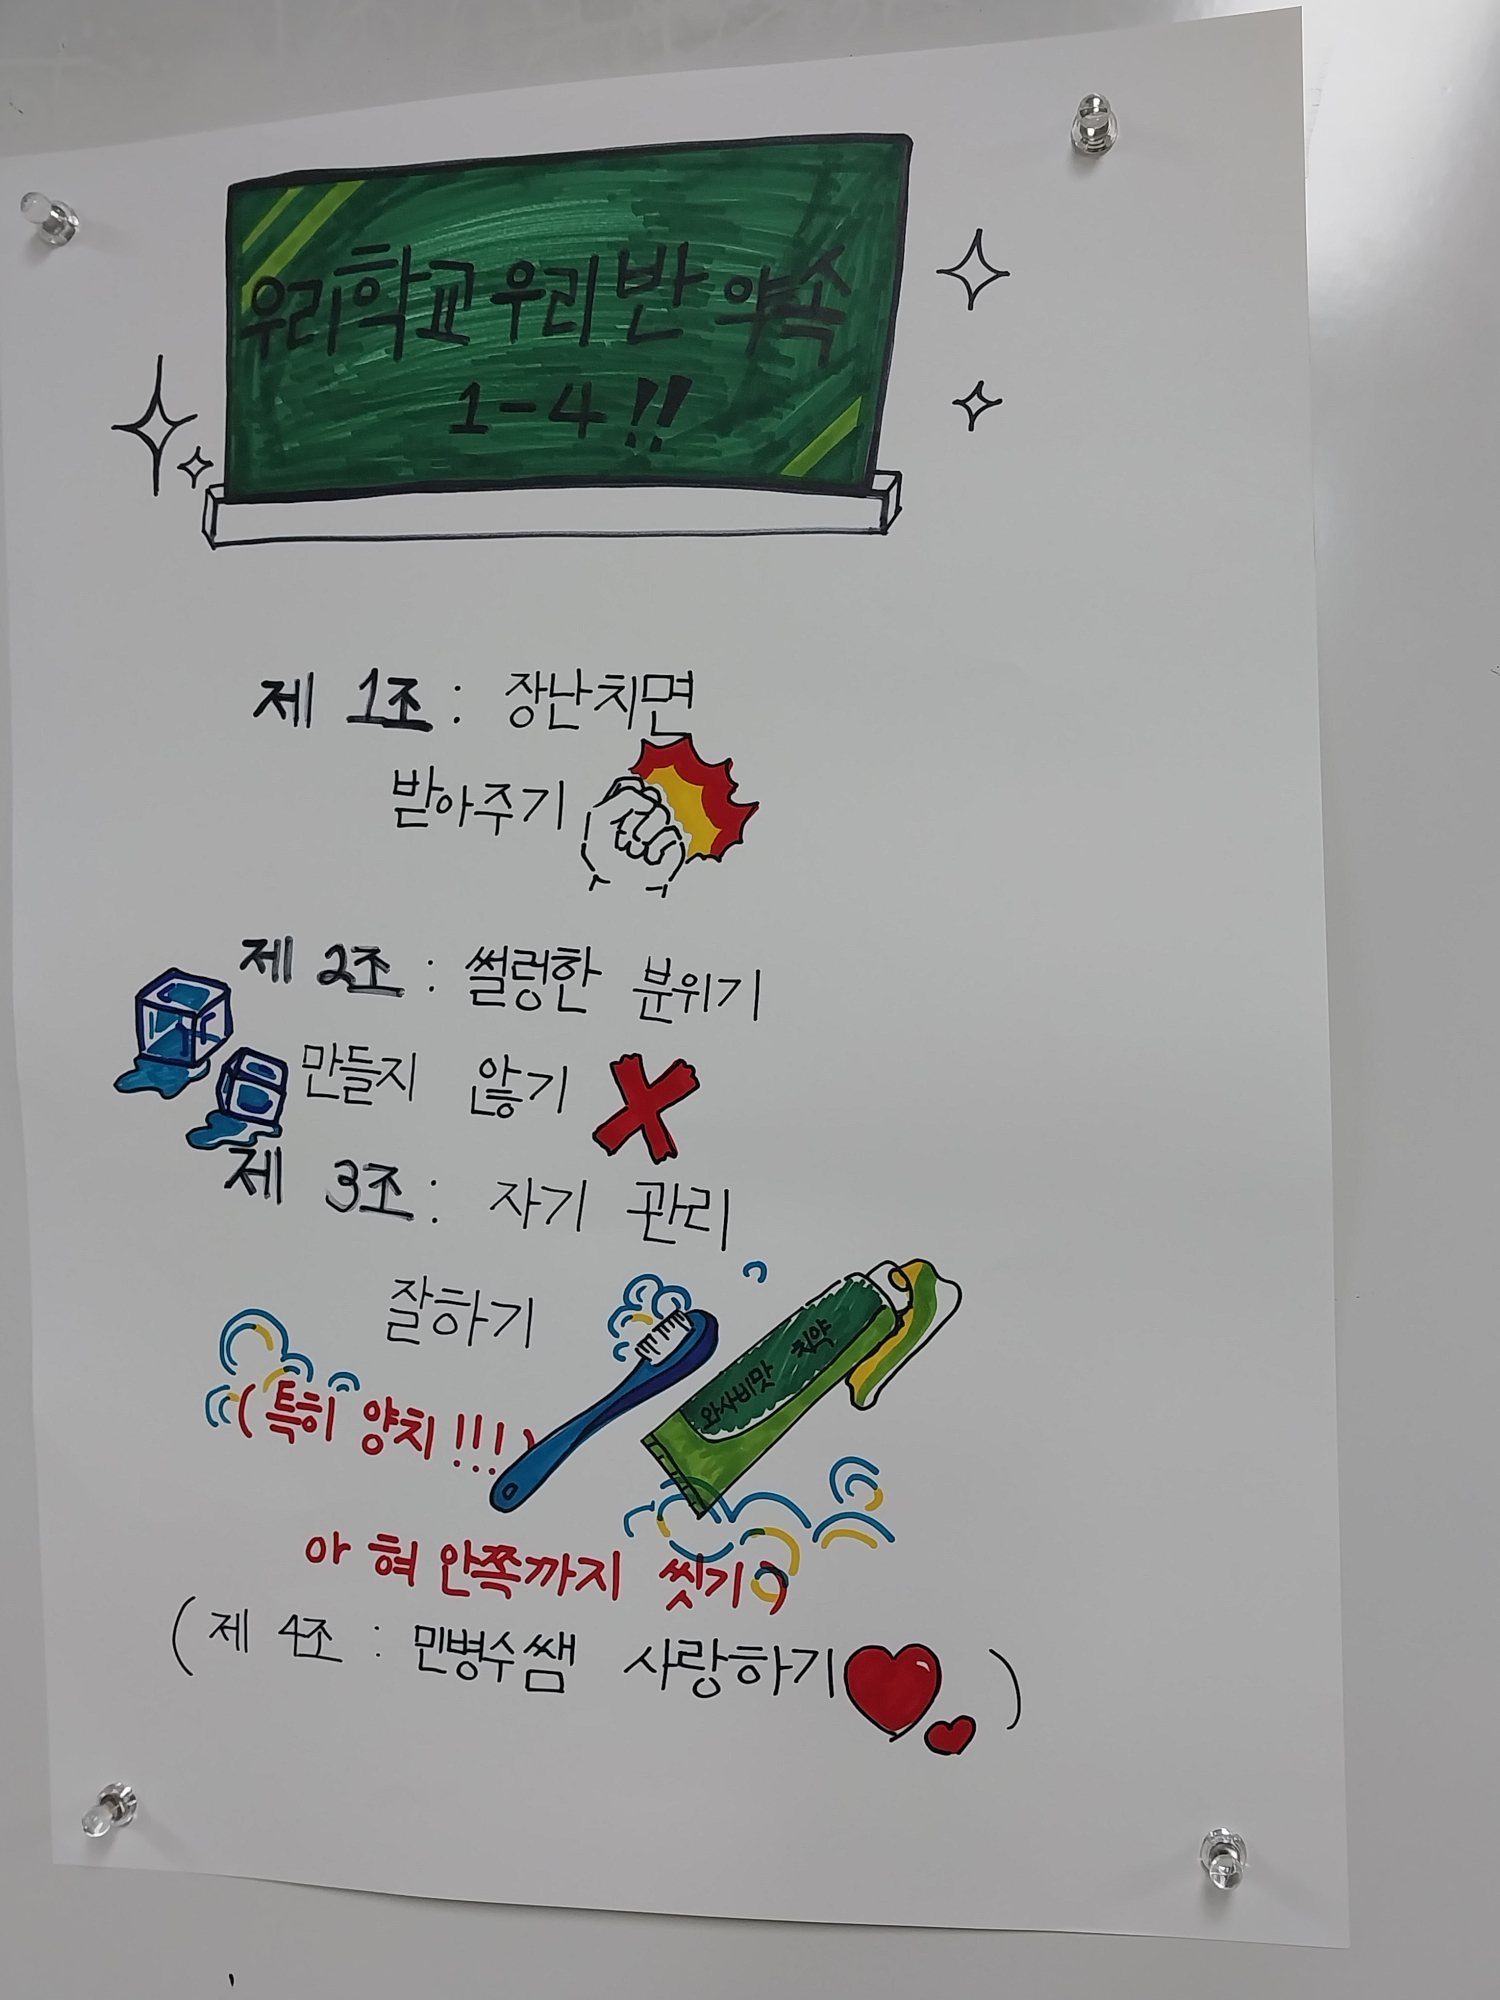 우리학교 우리 반 약속
1-4!!
제 1조 : 장난치면
받아주기
제 2조 : 썰렁한 분위기
만들지 않기
제 3조 : 자기 관리
잘하기
와사비맛 치약
(특히 양치!!!)
아 혀 안쪽까지 씻기)
(제 4조 : 민병수쌤 사랑하기 )